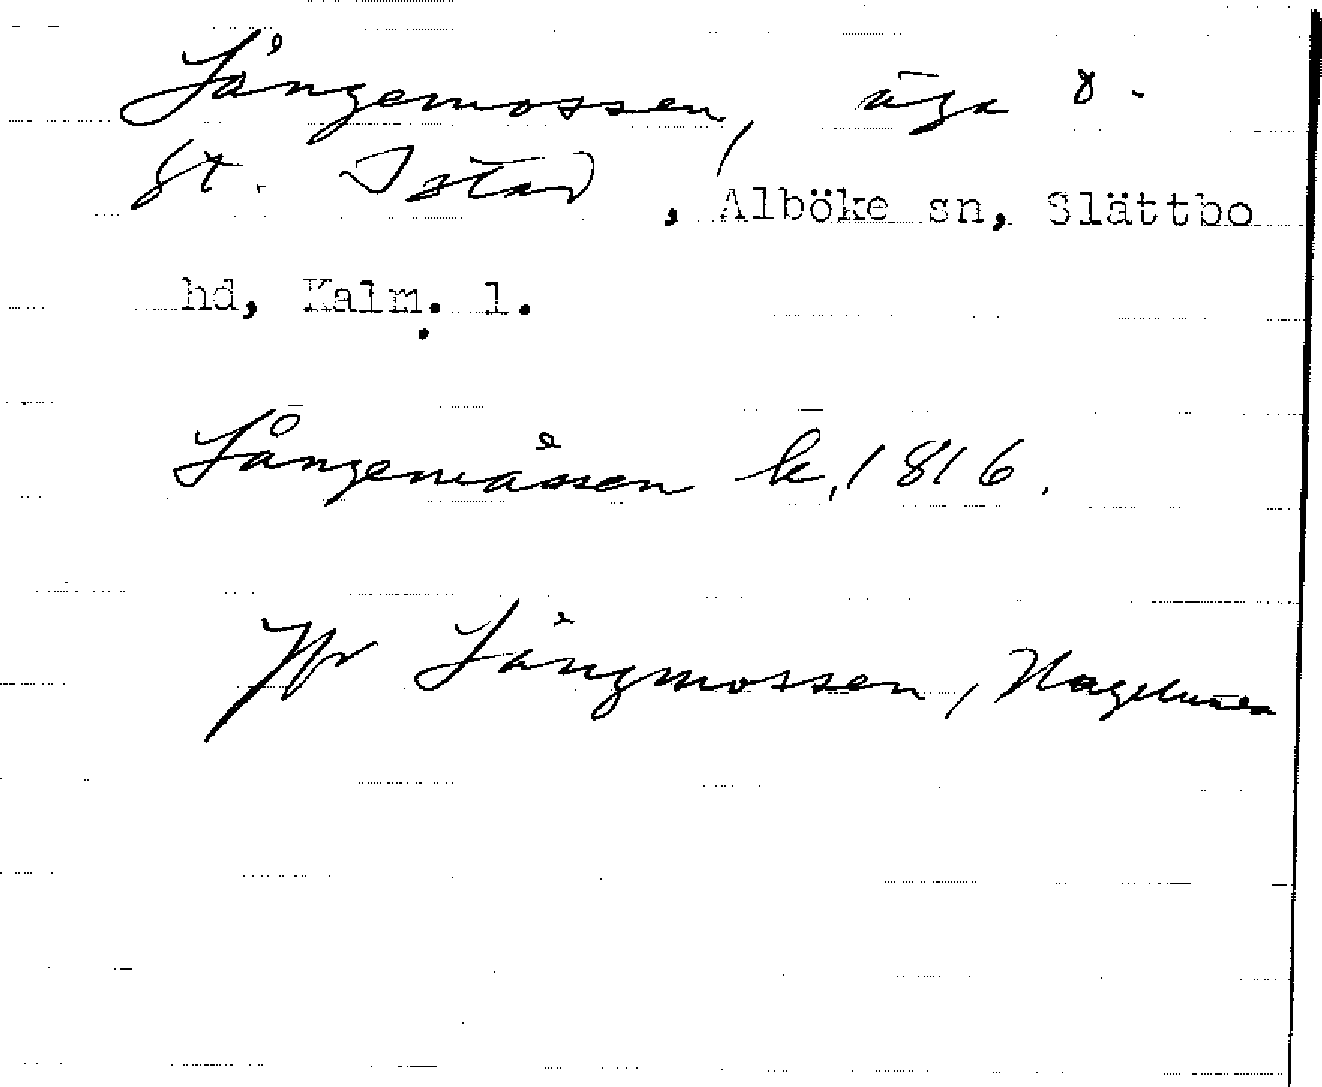 Långemossen, äga t.
St. Istad, Alböke sn, Slättbo
hd, Kalm. l.
Långemåssen k. 1816.
Jfr Långmossen,